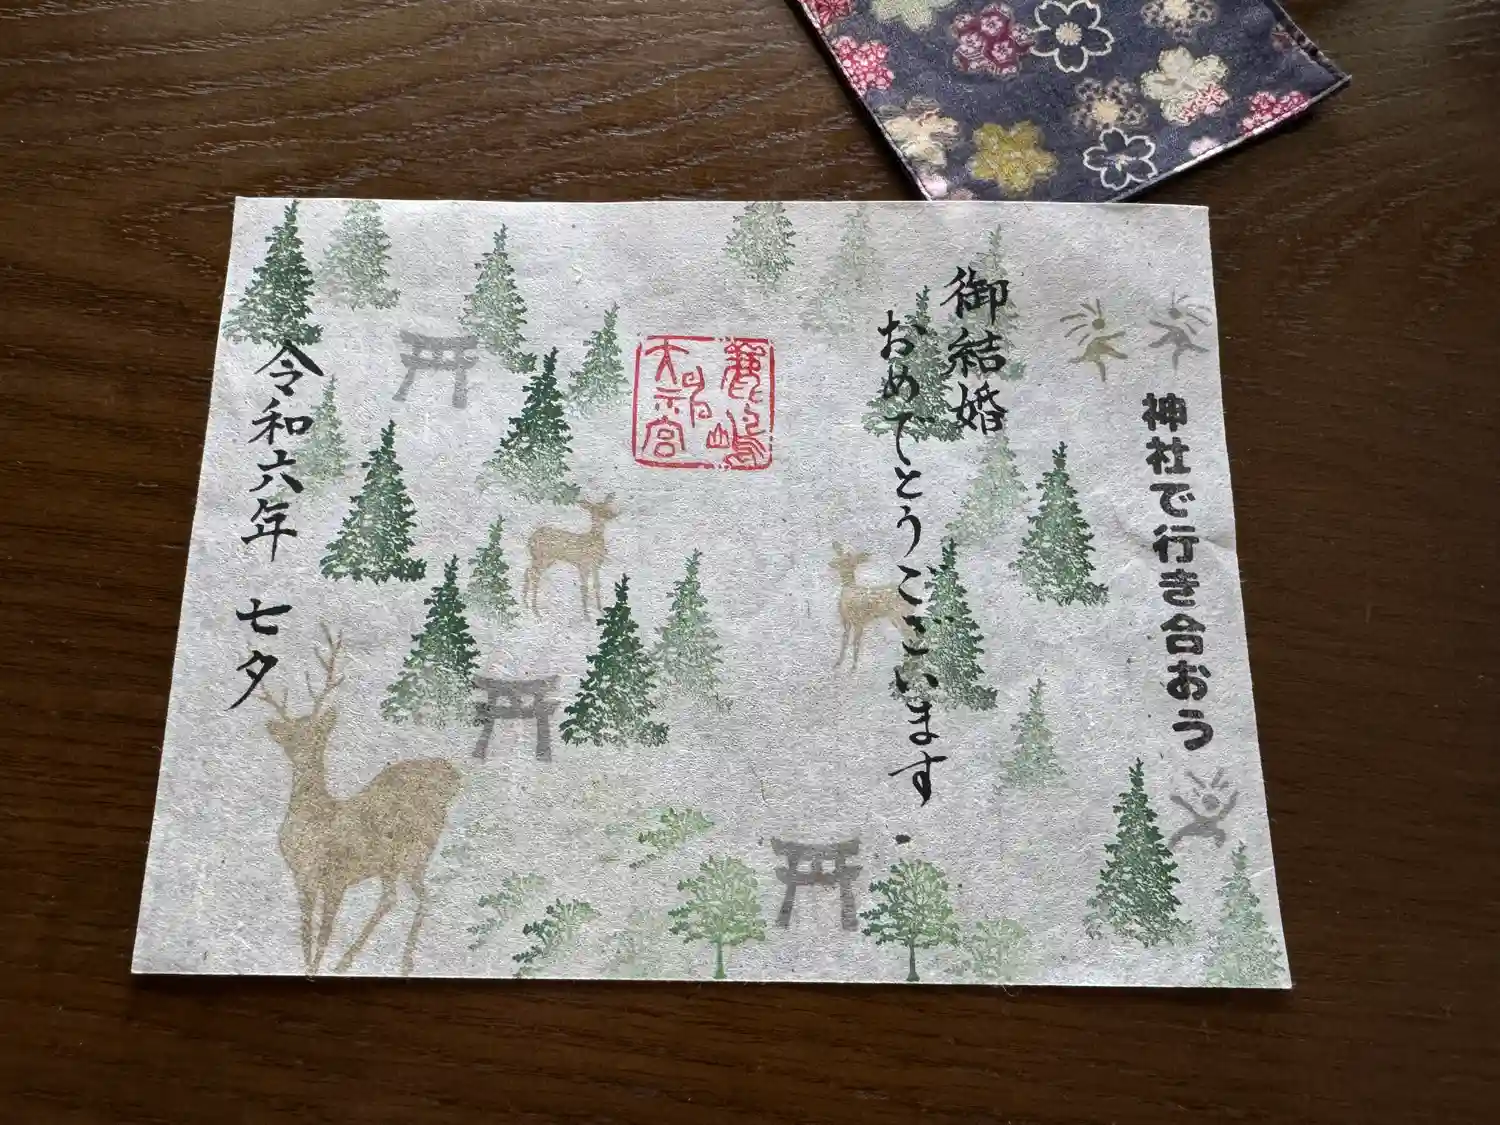 神社で行き合おう
御結婚
おめでとうございます
鹿嶋
天神宮
令和六年 七夕